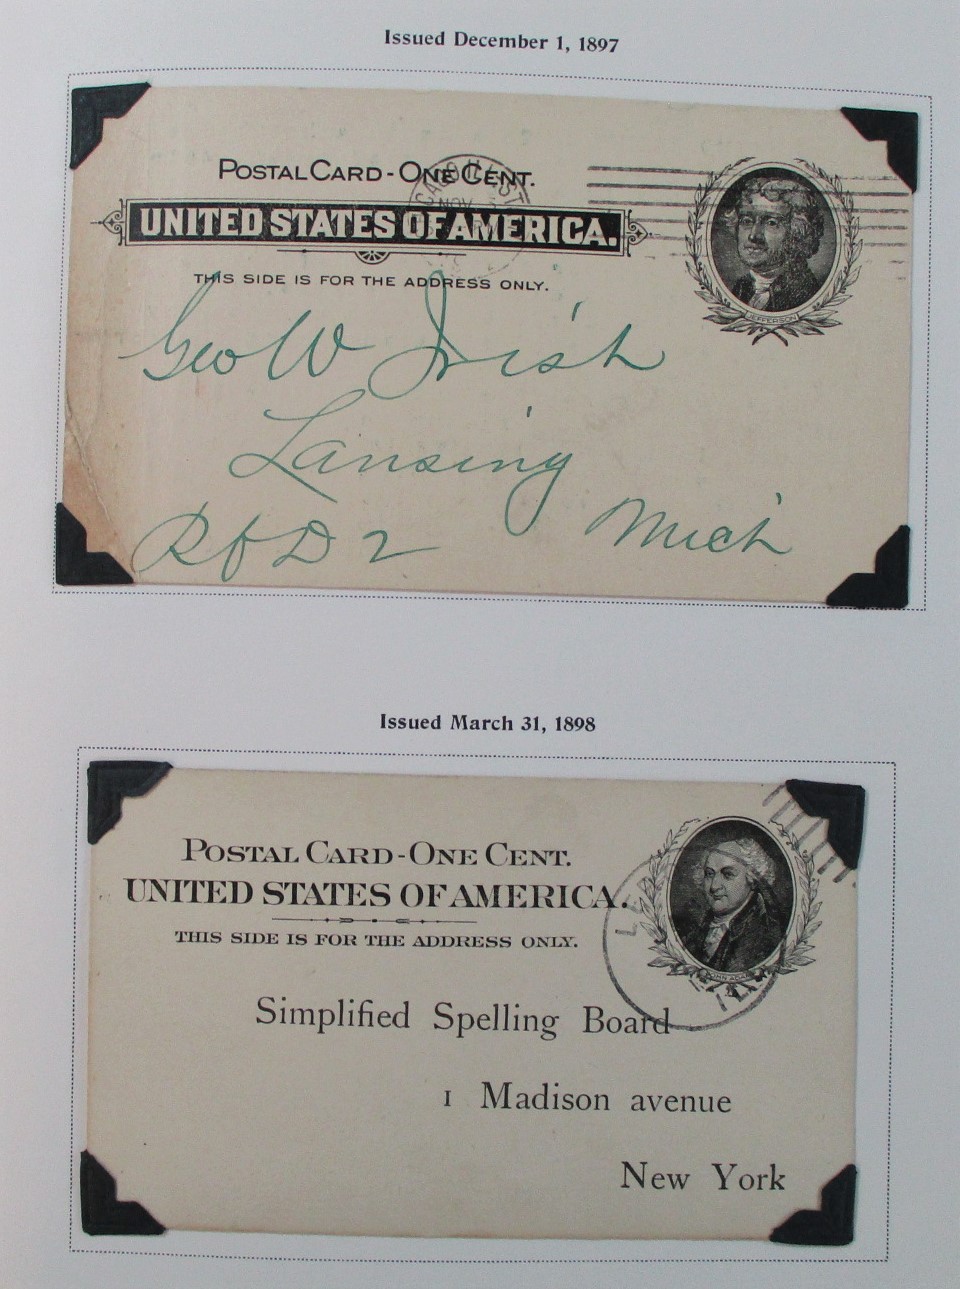 Issued December 1, 1897
POSTAL CARD - ONE CENT.
UNITED STATES OF AMERICA.
THIS SIDE IS FOR THE ADDRESS ONLY.
JEFFERSON
Geo W Irish
Lansing
RFD 2 Mich
Issued March 31, 1898
POSTAL CARD - ONE CENT.
UNITED STATES OF AMERICA.
THIS SIDE IS FOR THE ADDRESS ONLY.
Simplified Spelling Board
1 Madison avenue
New York